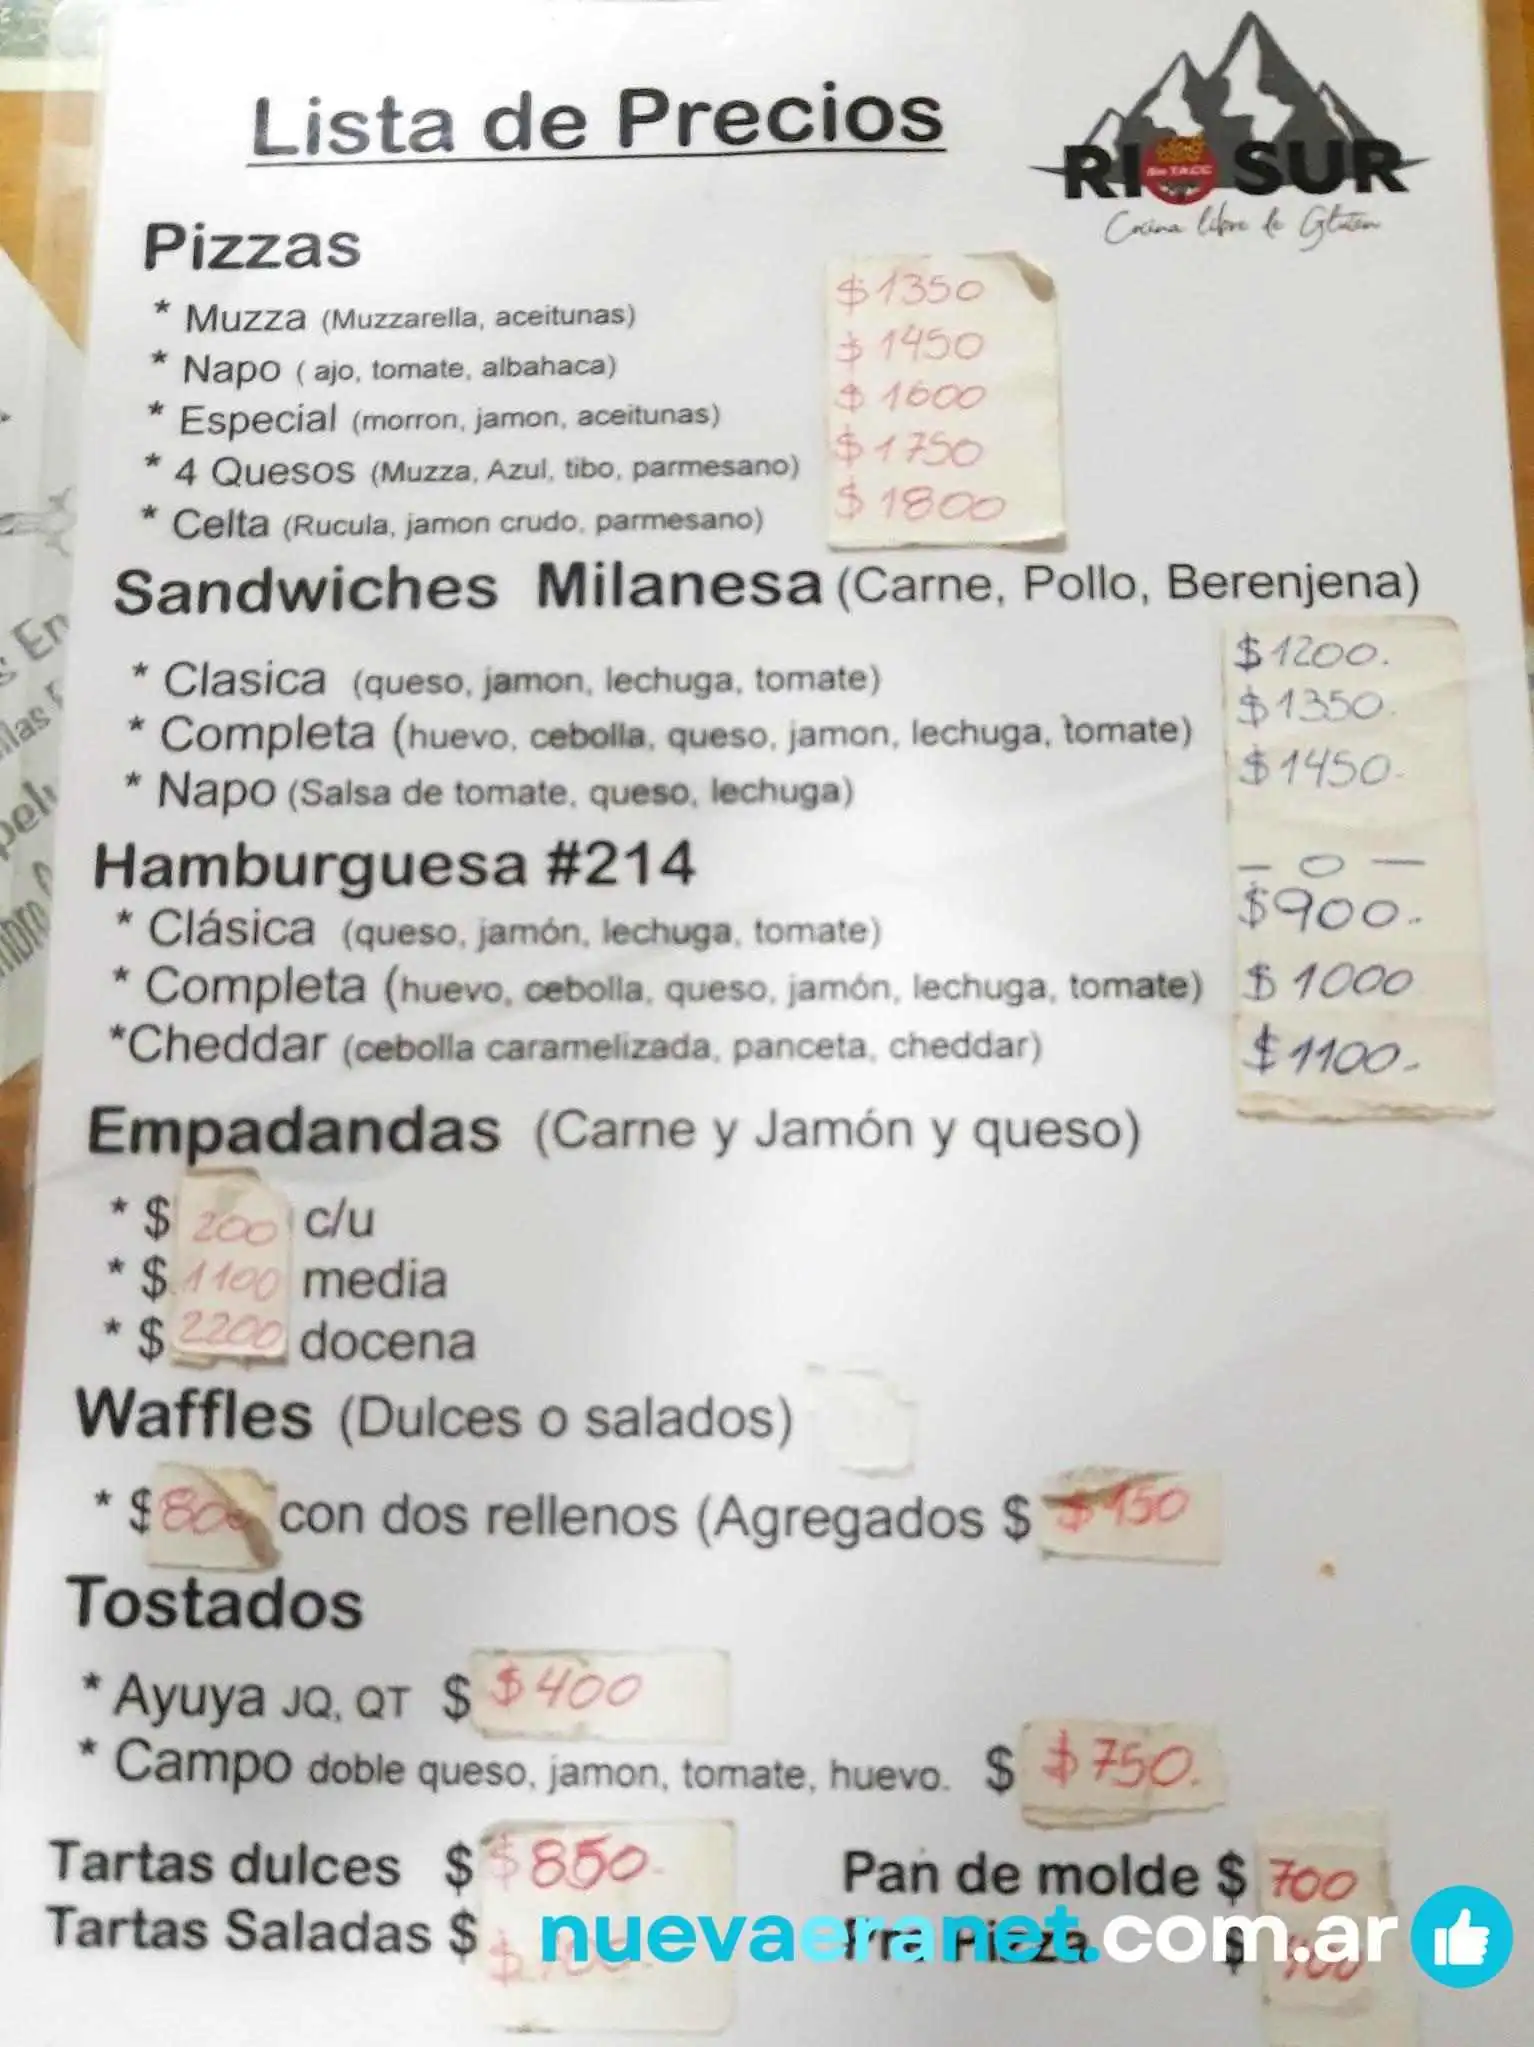 Lista de Precios
RIO SUR
Sin TACC
Cocina libre de Gluten
Pizzas
* Muzza (Muzzarella, aceitunas) $1350
* Napo ( ajo, tomate, albahaca) $1450
* Especial (morron, jamon, aceitunas) $1600
* 4 Quesos (Muzza, Azul, tibo, parmesano) $1750
* Celta (Rucula, jamon crudo, parmesano) $1800
Sandwiches Milanesa (Carne, Pollo, Berenjena)
* Clasica (queso, jamon, lechuga, tomate) $1200.
* Completa (huevo, cebolla, queso, jamon, lechuga, tomate) $1350.
* Napo (Salsa de tomate, queso, lechuga) $1450-
— o —
Hamburguesa #214
* Clásica (queso, jamón, lechuga, tomate) $900-
* Completa (huevo, cebolla, queso, jamón, lechuga, tomate) $1000
*Cheddar (cebolla caramelizada, panceta, cheddar) $1100-
Empadandas (Carne y Jamón y queso)
* $ 200 c/u
* $ 1100 media
* $ 2200 docena
Waffles (Dulces o salados)
* $ 800 con dos rellenos (Agregados $ $150
Tostados
* Ayuya JQ, QT $ $400
* Campo doble queso, jamon, tomate, huevo. $ $750.
Tartas dulces $ $850- Pan de molde $ 700
Tartas Saladas $ Pizza $
nuevaeranet.com.ar